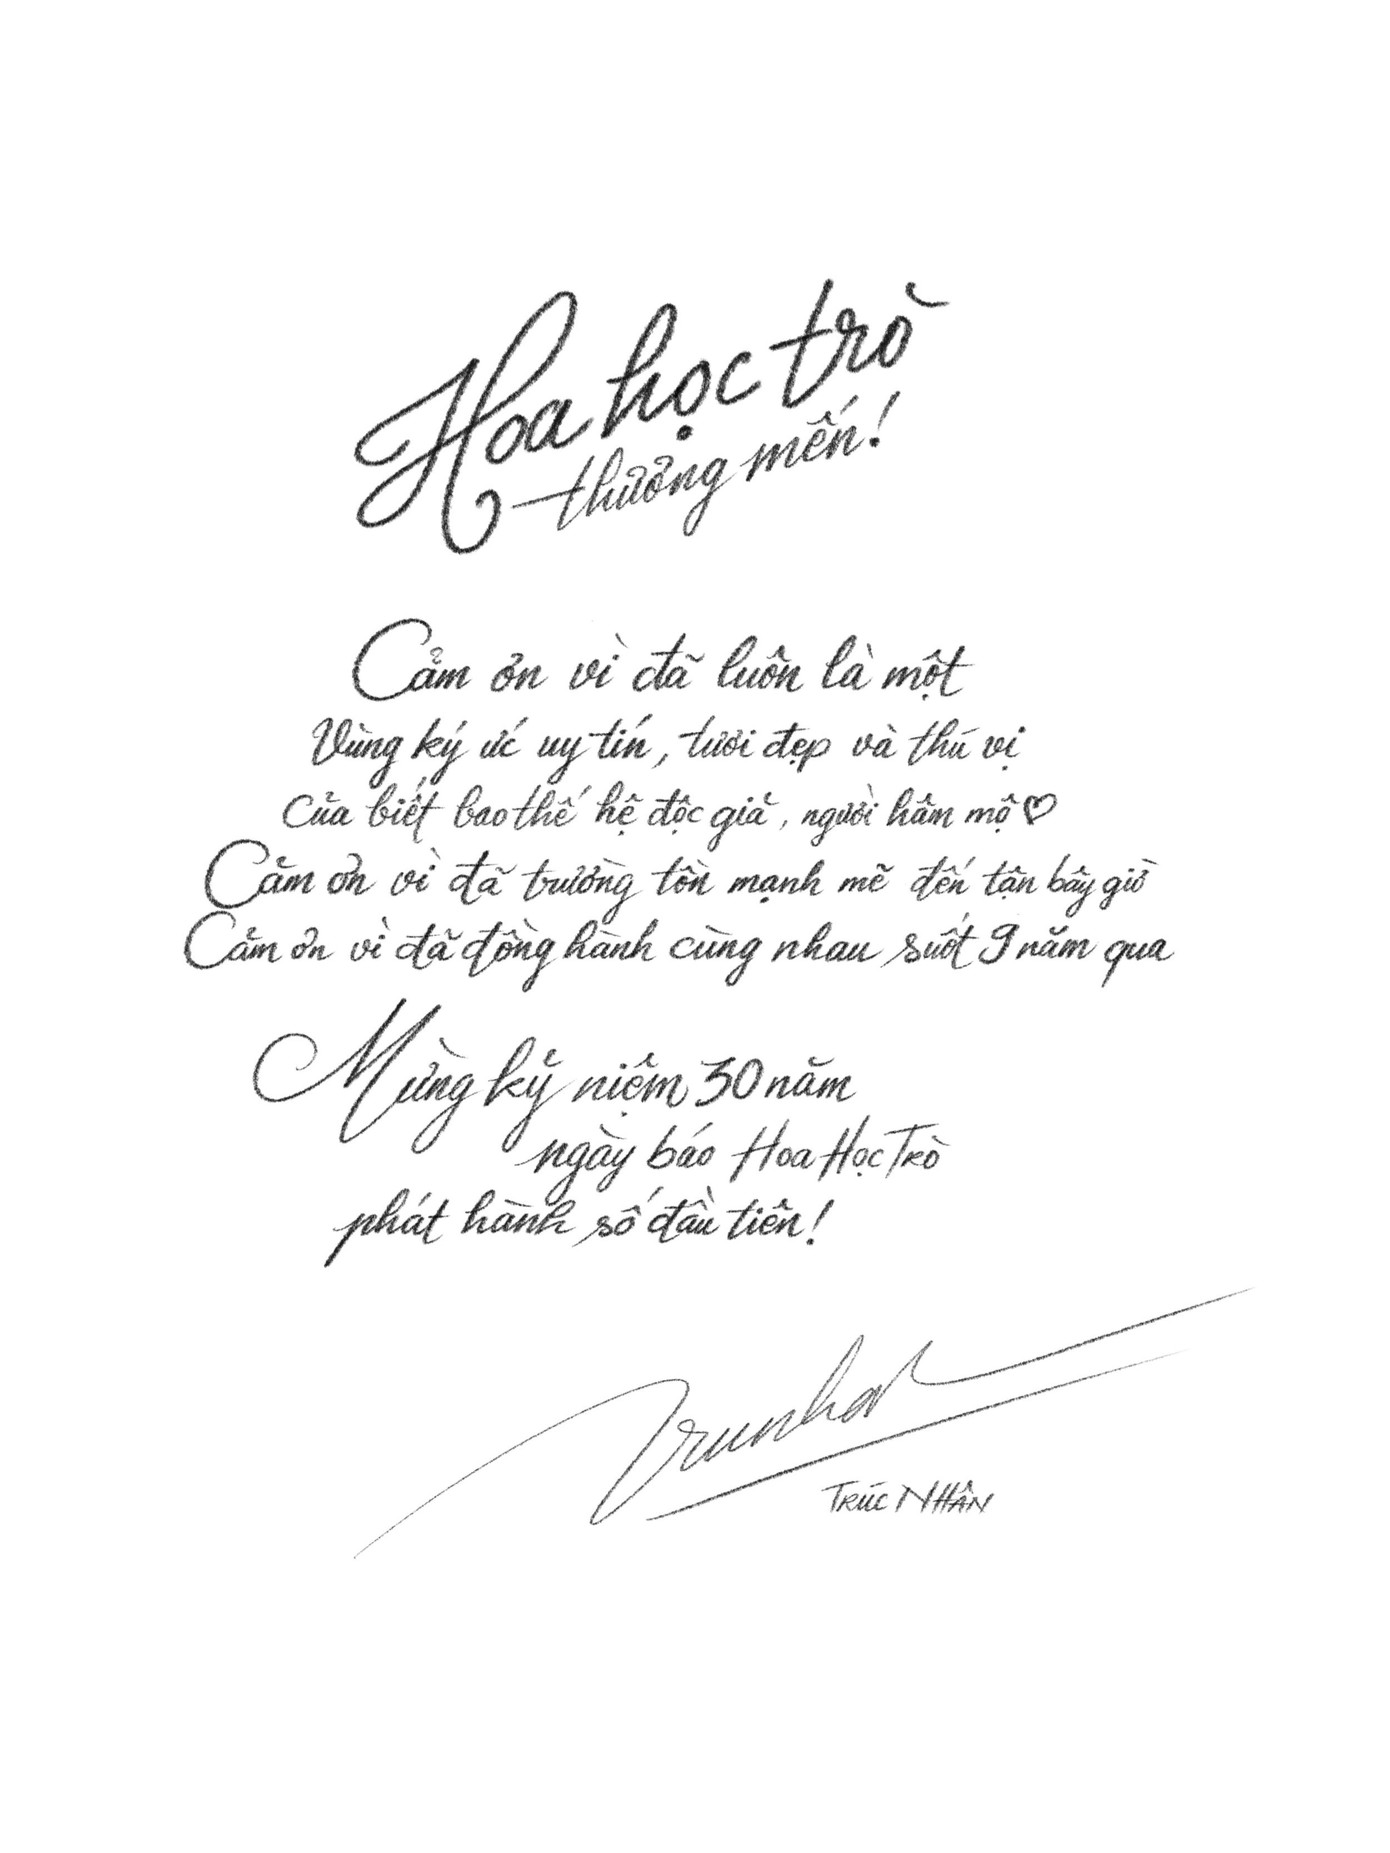 Hoa học trò
thương mến!
Cảm ơn vì đã luôn là một
Vùng ký ức uy tín, tươi đẹp và thú vị
Của biết bao thế hệ độc giả, người hâm mộ ♡
Cảm ơn vì đã trường tồn mạnh mẽ đến tận bây giờ
Cảm ơn vì đã đồng hành cùng nhau suốt 9 năm qua
Mừng kỷ niệm 30 năm
ngày báo Hoa Học Trò
phát hành số đầu tiên!
TRÚC NHÂN